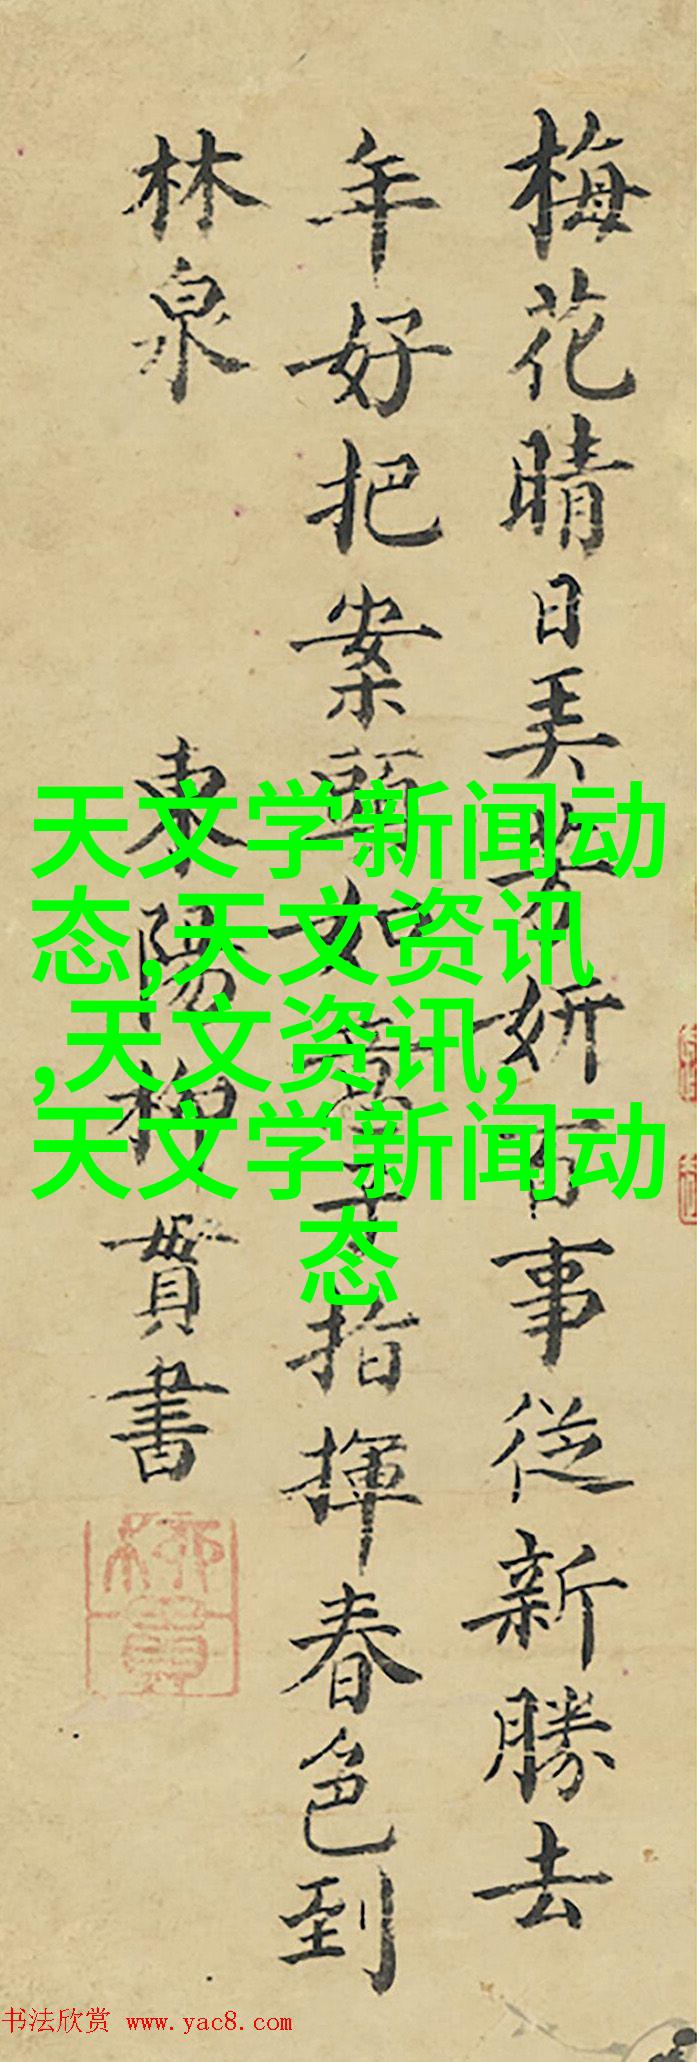 梅花晴日美芳妍百事從新勝去
年好把案頭如意子指揮春色到
林泉
東陽柳貫書
柳貫
天文学新闻动
态,天文资讯
,天文资讯,
天文学新闻动
态
书法欣赏 www.yac8.com